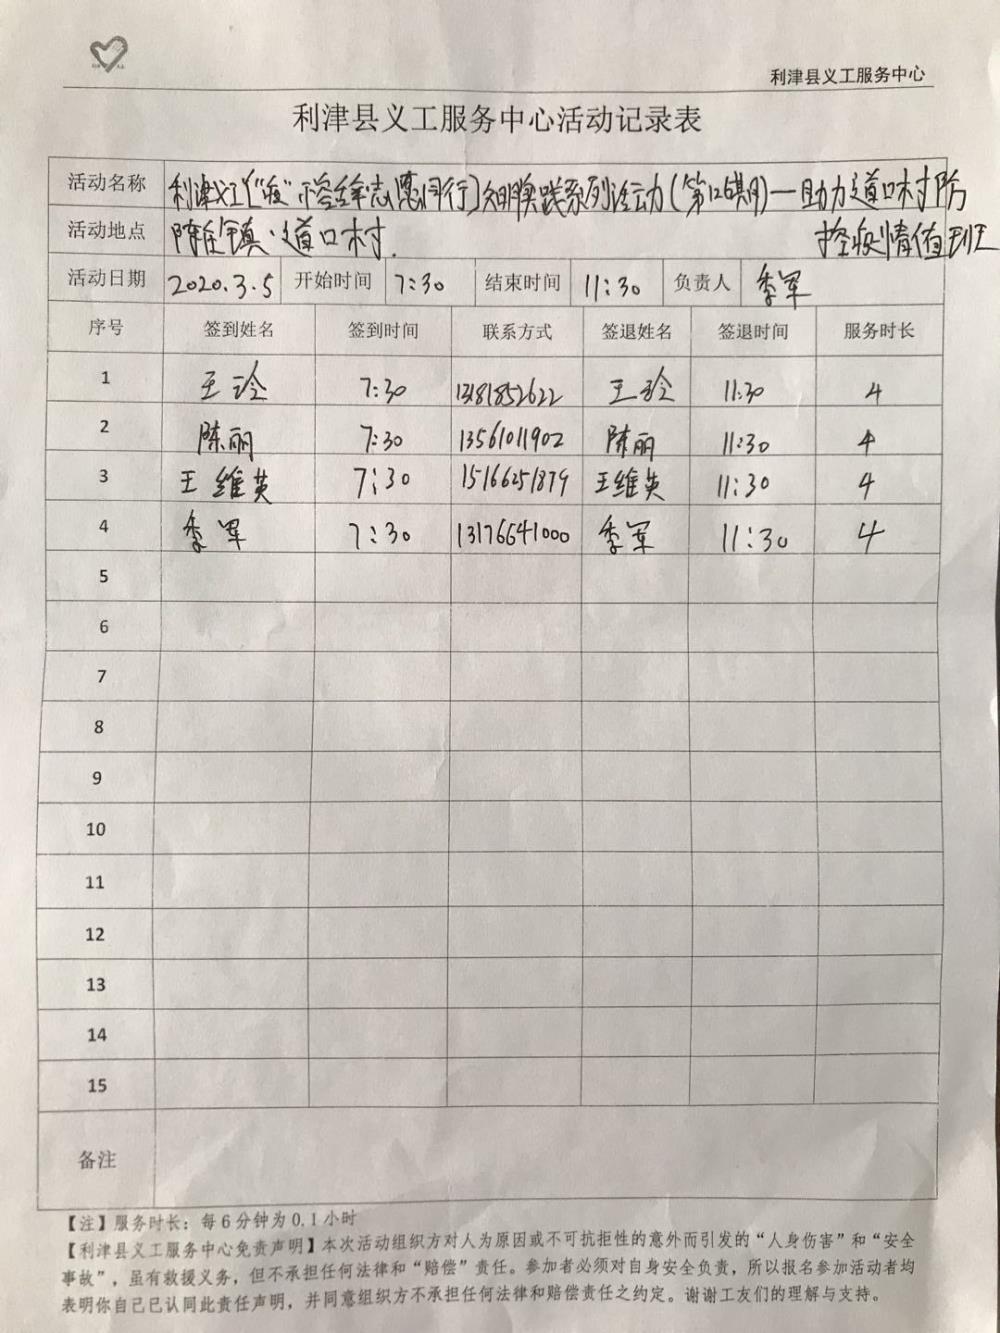 利津县义工服务中心
利津县义工服务中心活动记录表
活动名称 利津义工【"疫"不容辞 志愿同行】文明实践系列活动(第126期)—助力道口村防
控疫情值班
活动地点 陈庄镇·道口村.
活动日期 2020.3.5 开始时间 7:30 结束时间 11:30 负责人 季军
序号 签到姓名 签到时间 联系方式 签退姓名 签退时间 服务时长
1 王玲 7:30 13181852622 王玲 11:30 4
2 陈丽 7:30 13561011902 陈丽 11:30 4
3 王维英 7:30 15166251879 王维英 11:30 4
4 季军 7:30 13176641000 季军 11:30 4
5
6
7
8
9
10
11
12
13
14
15
备注
【注】服务时长：每6分钟为0.1小时
【利津县义工服务中心免责声明】本次活动组织方对人为原因或不可抗拒性的意外而引发的“人身伤害”和“安全
事故”，虽有救援义务，但不承担任何法律和“赔偿”责任。参加者必须对自身安全负责，所以报名参加活动者均
表明你自己已认同此责任声明，并同意组织方不承担任何法律和赔偿责任之约定。谢谢工友们的理解与支持。